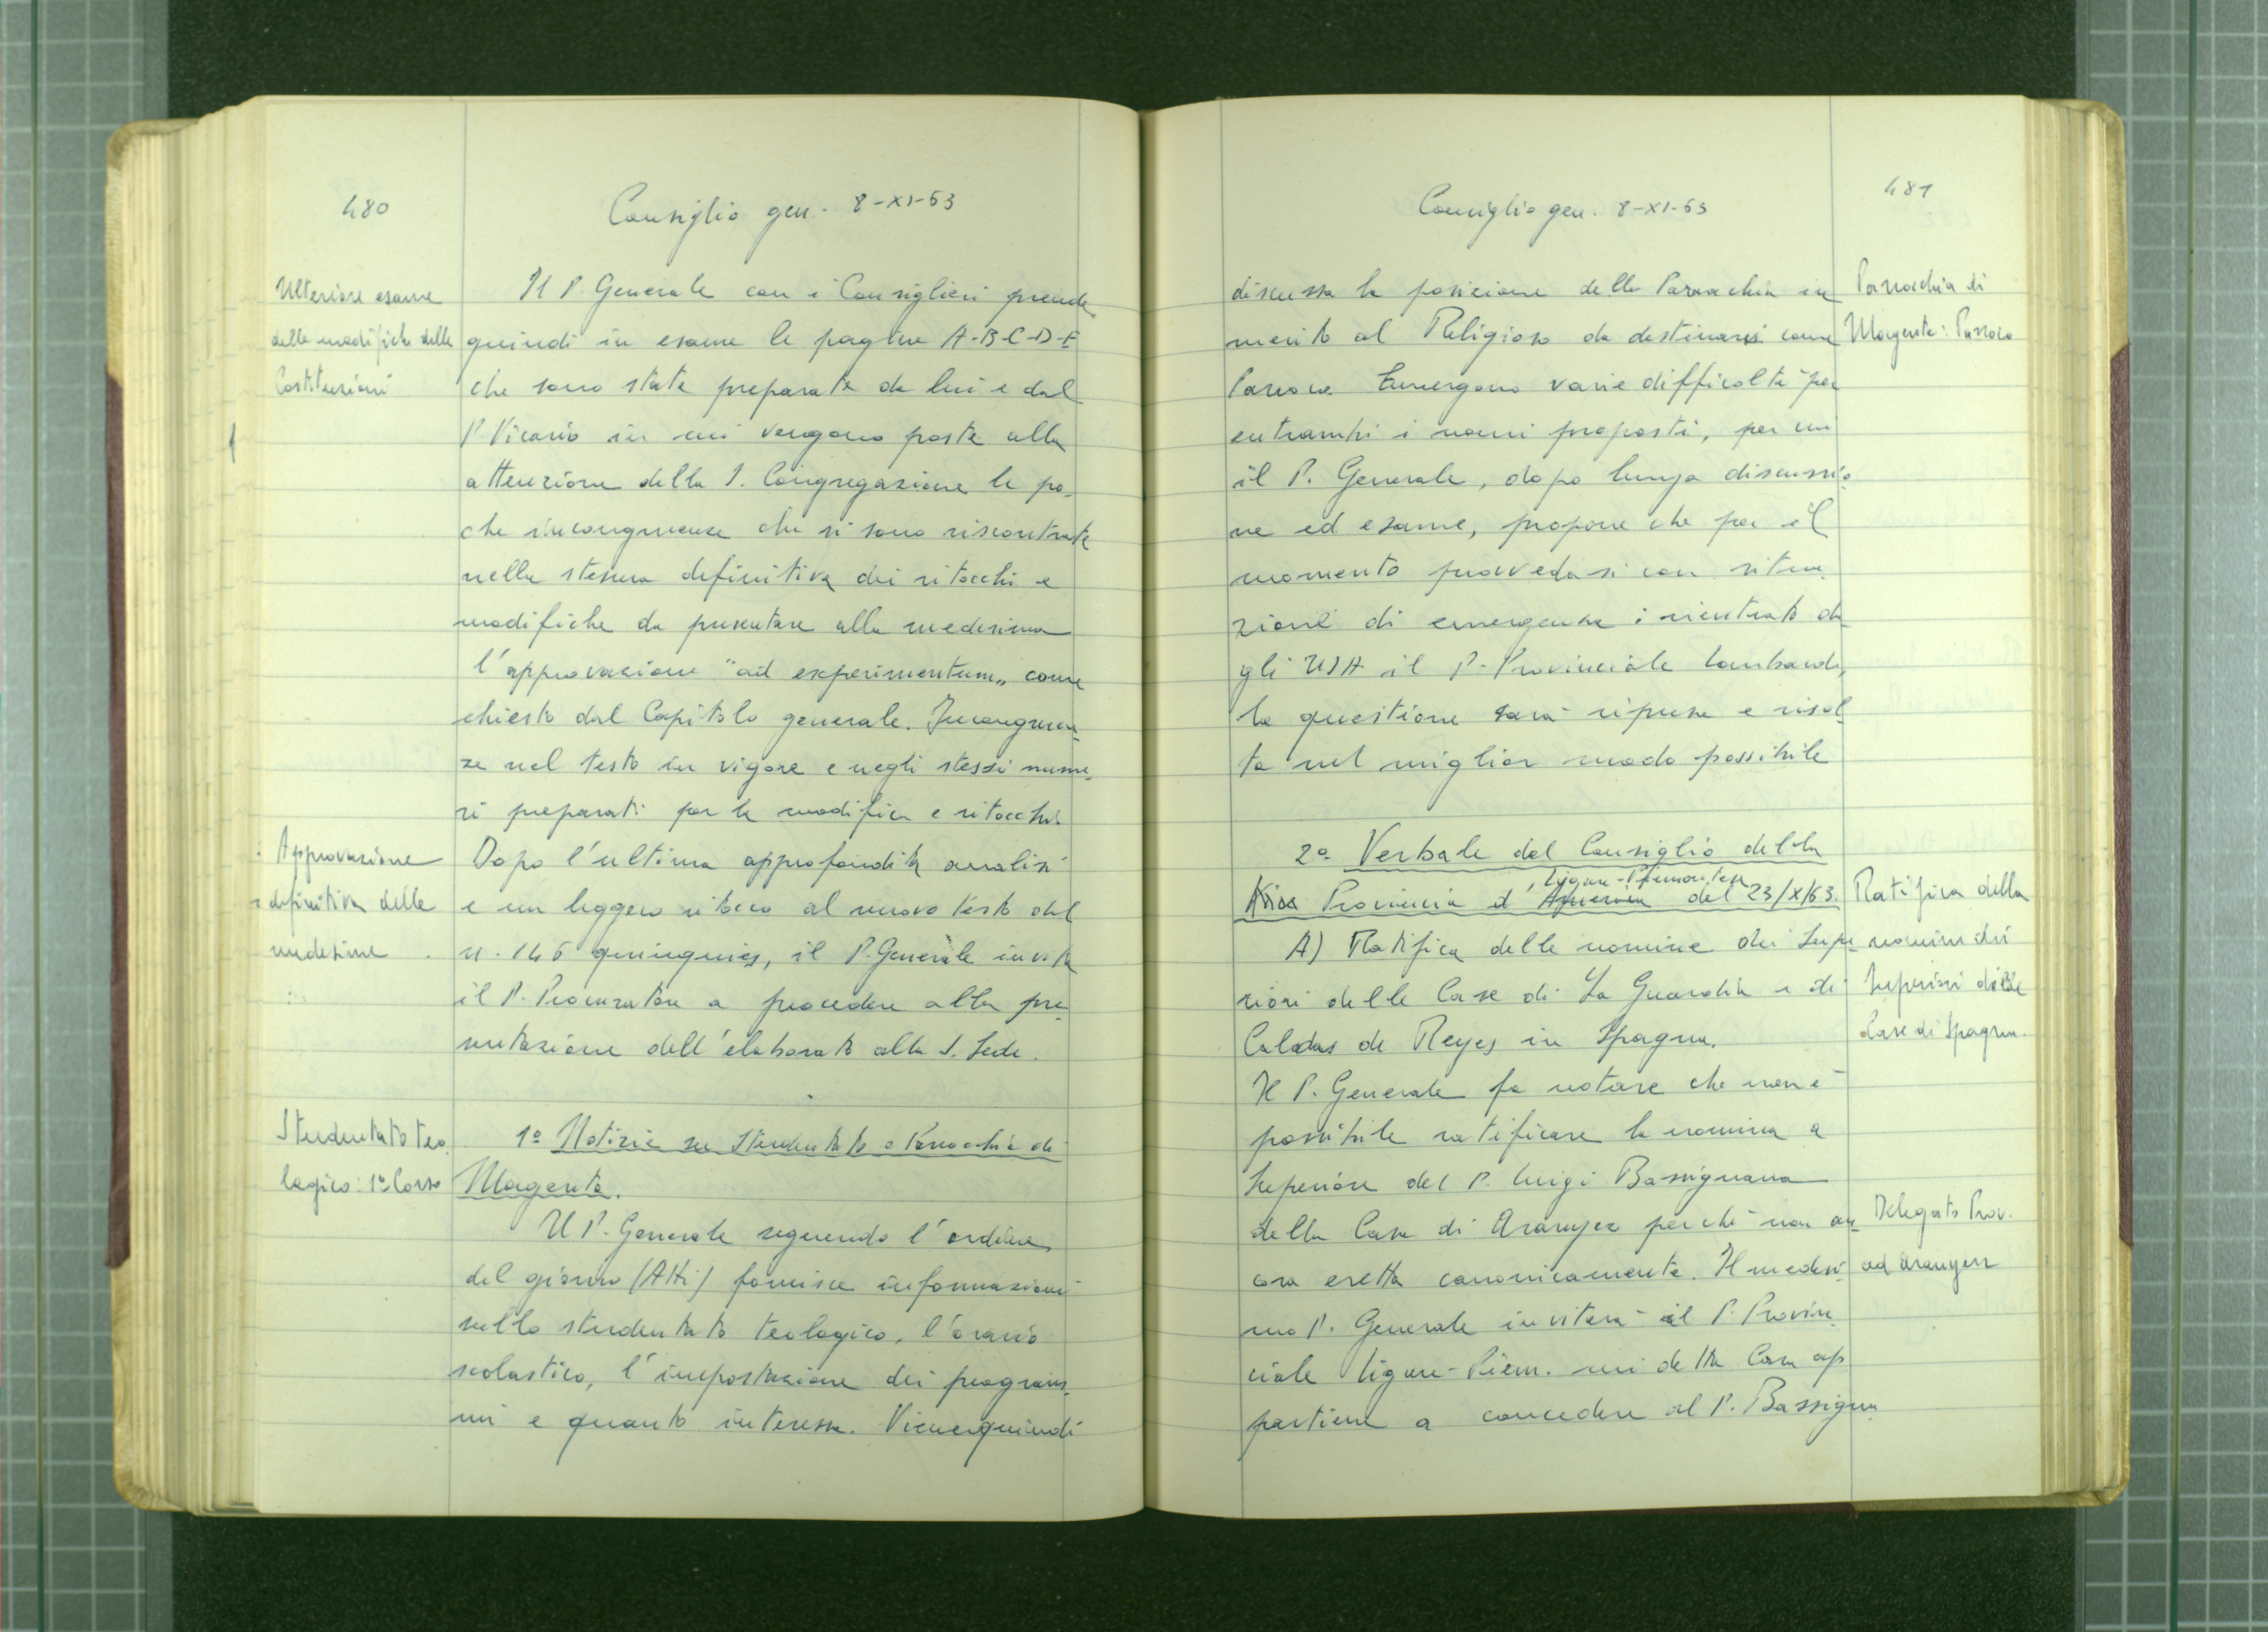 480
Consiglio gen. 8-XI-63
Ulteriore esame
delle modifiche delle
Costituzioni
Il P. Generale con i Consiglieri prende
quindi in esame le pagine A-B-C-D-E
che sono state preparate da lui e dal
P. Vicario in cui vengono poste alla
attenzione della S. Congregazione le po-
che incongruenze che si sono riscontrate
nella stesura definitiva dei ritocchi e
modifiche da presentare alla medesima
l'approvazione "ad experimentum" come
chiesto dal Capitolo generale. Incongruen-
ze nel testo in vigore e negli stessi nume-
ri preparati per la modifica e ritocchi
Approvazione
definitiva delle
medesime
Dopo l'ultima approfondita analisi
e un leggero ritocco al nuovo testo del
n. 146 quinquies, il P. Generale invita
il P. Procuratore a procedere alla pre-
sentazione dell'elaborato alla S. Sede.
Studentato teo-
logico: 1º Corso
1º Notizie su Studentato e Parrocchia di
Magenta.
Il P. Generale seguendo l'ordine
del giorno (Atti) fornisce informazioni
sullo studentato teologico, l'orario
scolastico, l'impostazione dei program-
mi e quanto interessa. Viene quindi
481
Consiglio gen. 8-XI-63
discussa la posizione della Parrocchia in
merito al Religioso da destinarsi come
Parroco. Emergono varie difficoltà per
entrambi i nomi proposti, per cui
il P. Generale, dopo lunga discussio-
ne ed esame, propone che per il
momento provvedasi con situa-
zione di emergenza: rientrato da-
gli USA il P. Provinciale Lombardo,
la questione sarà ripresa e risol-
ta nel miglior modo possibile
Parrocchia di
Magenta: Parroco
2º Verbale del Consiglio della
Ligure-Piemontese
Provincia d'America del 23/X/63.
A) Ratifica delle nomine dei Supe-
riori delle Case di La Guardia e di
Caldas de Reyes in Spagna.
Il P. Generale fa notare che non è
possibile ratificare la nomina a
Superiore del P. Luigi Bassignana
della Casa di Aranyez perché non an-
cora eretta canonicamente. Il medesi-
mo P. Generale inviterà il P. Provin-
ciale Ligure-Piem. cui detta Casa ap-
partiene a concedere al P. Bassigna
Ratifica della
nomine dei
Superiori delle
Case di Spagna.
Delegato Prov.
ad Aranyez